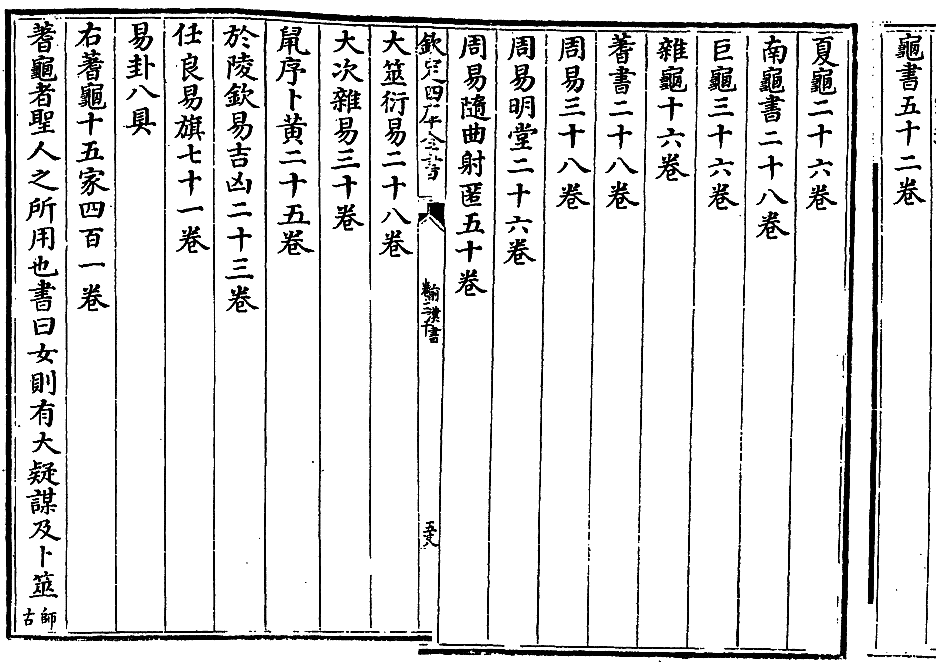 龜書五十二卷
夏龜二十六卷
南龜書二十八卷
巨龜三十六卷
雜龜十六卷
蓍書二十八卷
周易三十八卷
周易明堂二十六卷
周易隨曲射匿五十卷
欽定四庫全書
前漢書
大筮衍易二十八卷
大次雜易三十卷
鼠序卜黃二十五卷
於陵欽易吉凶二十三卷
任良易旗七十一卷
易卦八具
右蓍龜十五家四百一卷
蓍龜者聖人之所用也書曰女則有大疑謀及卜筮師古